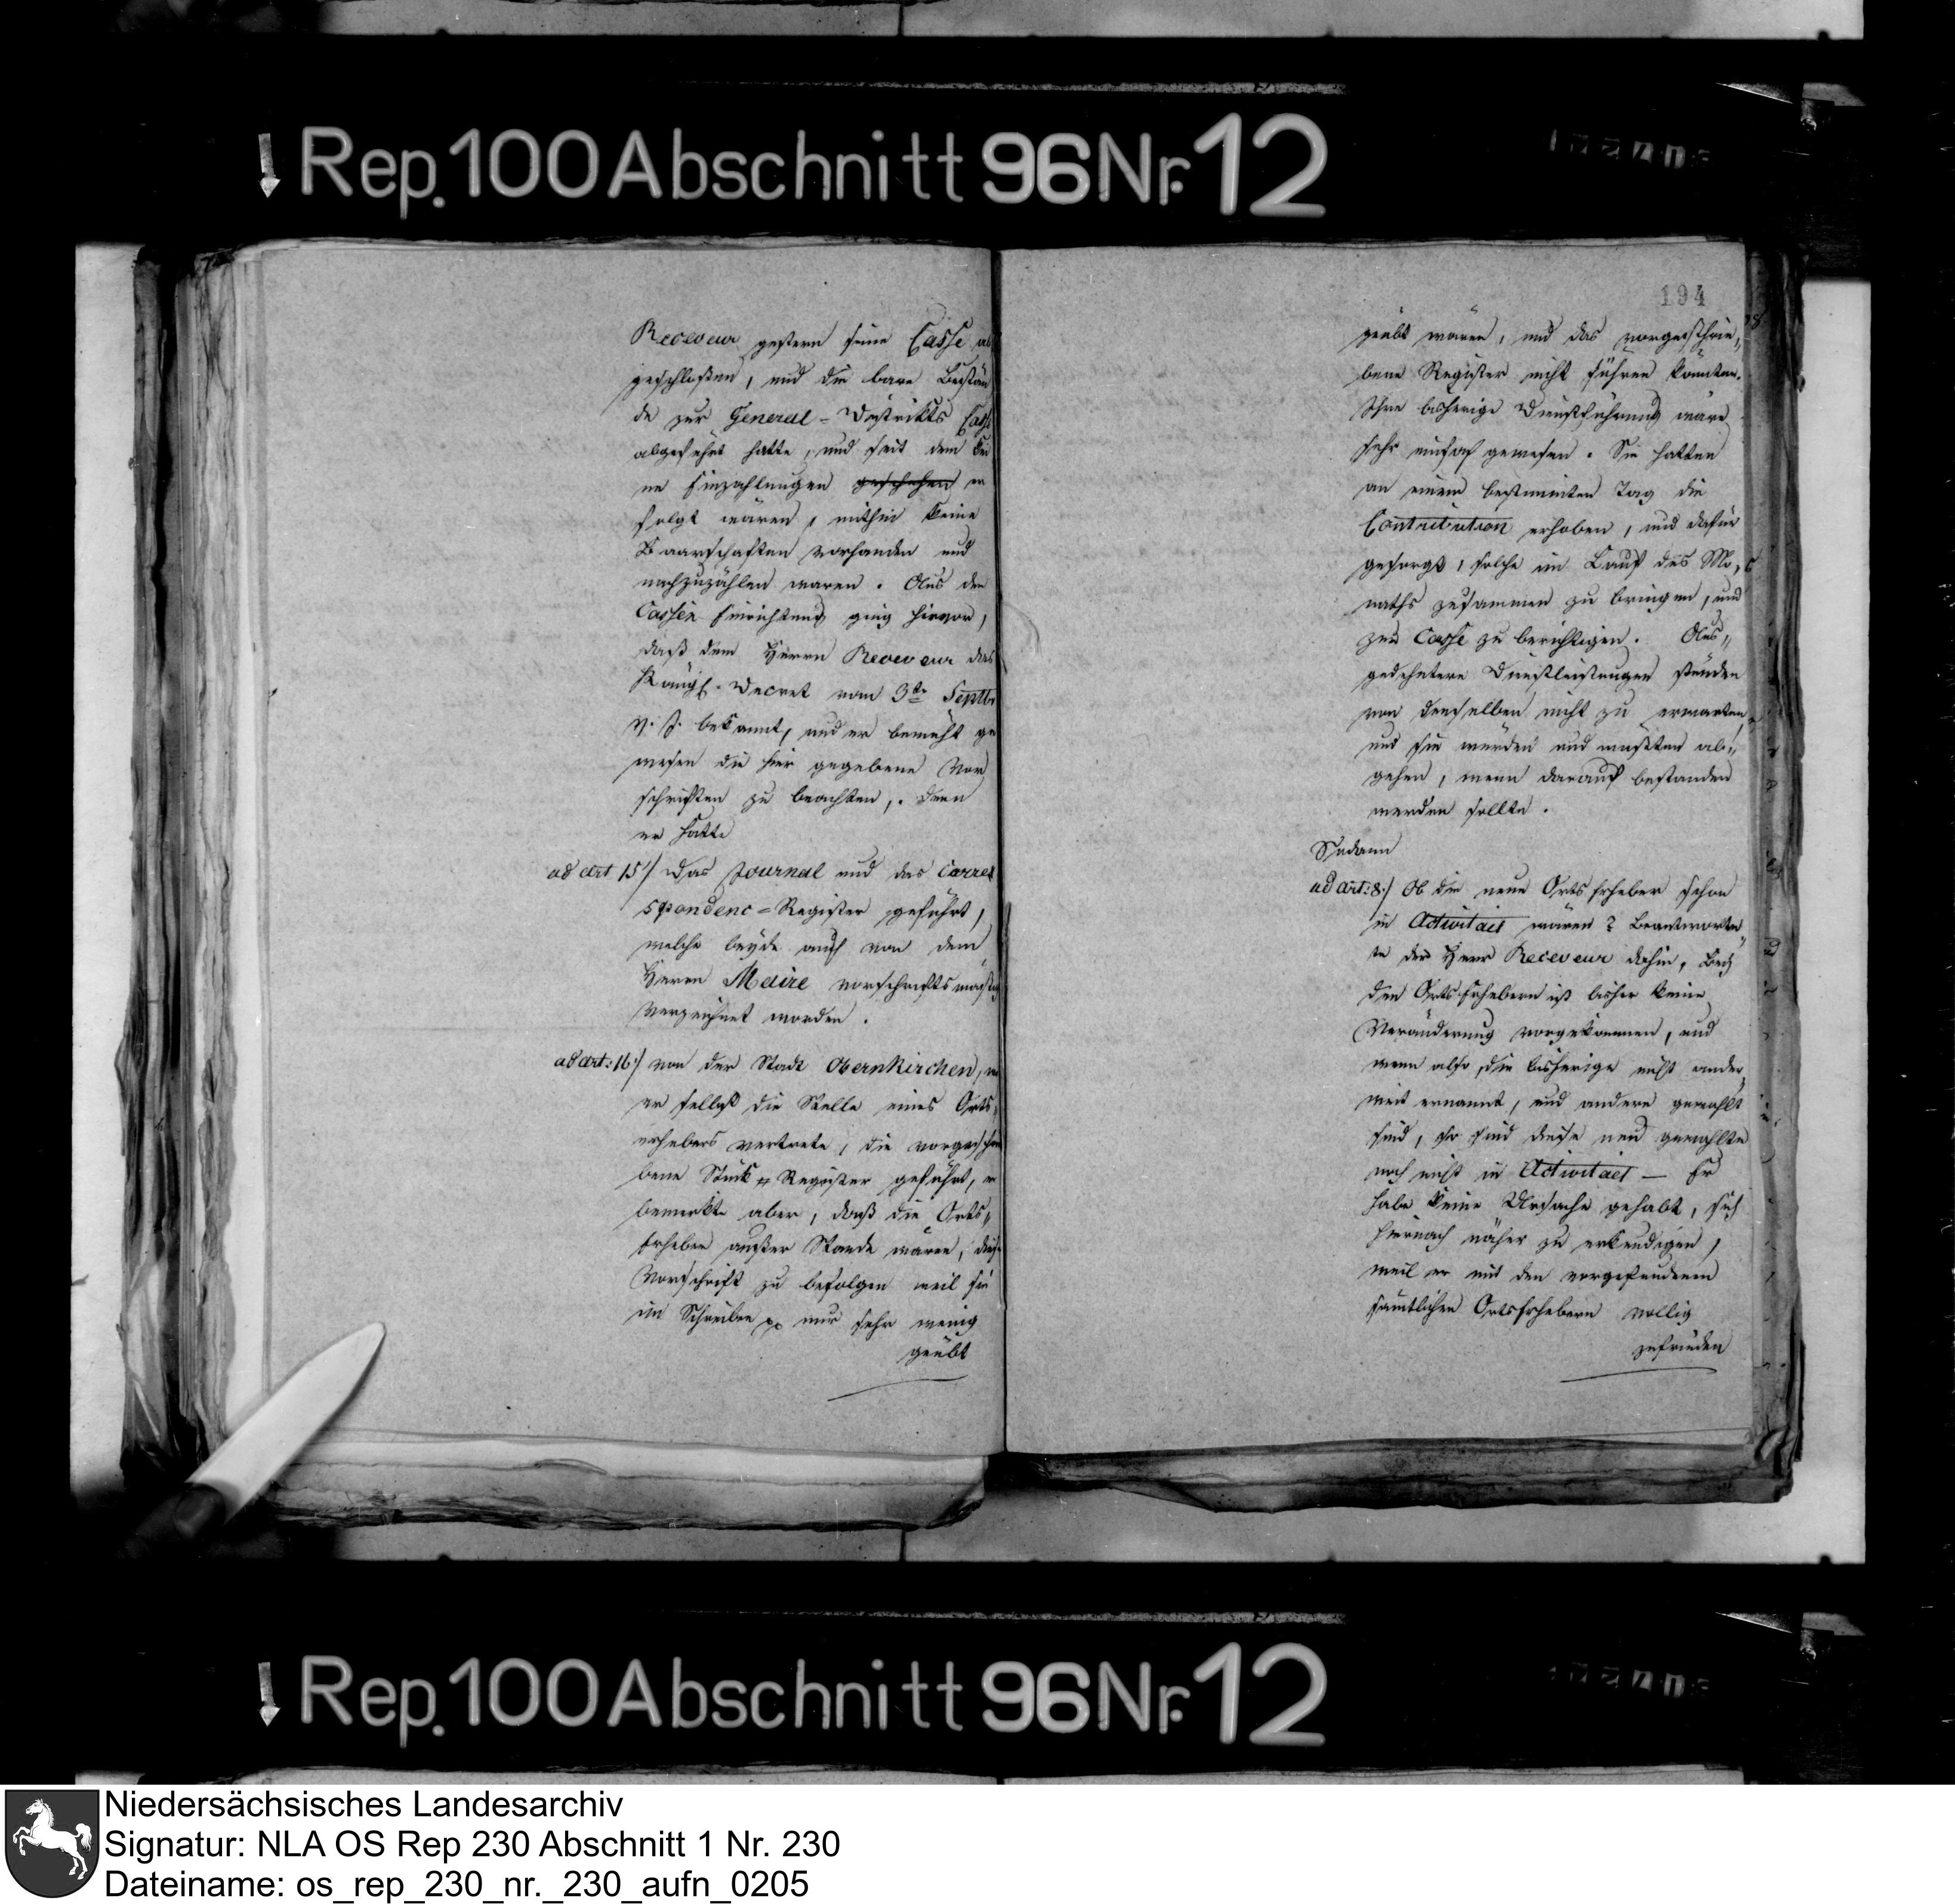 Rep. 100 Abschnitt 96 Nr. 12
Receveur gestern seine Casse ab
geschloßen, und die bare Bestän
de zur General-Distrikts Casse
abgeführt hatte, und seit dem kei
ne Einzahlungen geschehen er
folgt wären, mithin keine
Baarschaften vorhanden und
nachzuzählen waren. Aus der
Cassen Einrichtung ging hervor,
daß dem Herrn Receveur das
Königl. Decret vom 3ten Septbr
v. J. bekannt, und er bemüht ge
wesen die hier gegebene Vor
schriften zu beachten, denn
er hatte
ad art 15/ Das Journal und das Corre
spondenc-Register geführt,
welche beyde auch von dem
Herrn Maire vorschriftsmäßig
verzeichnet worden.
ad art: 16/ von der Stadt Obernkirchen, wo
er selbst die Stelle eines Orts
erhebers vertrete, die vorgeschrie
bene Stück Register geführt, er
bemerkte aber, daß die Orts-
Erheber außer Stande wären, diese
Vorschrift zu befolgen weil sie
im Schreiben pp nur sehr wenig
geübt
194
geübt wären, und das vorgeschrie-
bene Register nicht führen könnten.
Ihre bisherige Dienstführung wäre
sehr einfach gewesen. Sie hatten
an einem bestimmten Tag die
Contribution erhoben, und dafür
gesorgt, solche im Lauf des Mo-
naths zusammen zu bringen, und
zur Casse zu berichtigen. Aus-
gedehntere Dienstleistungen stünden
von denselben nicht zu erwarten
und sie würden und müßten ab-
gehen, wenn darauf bestanden
werden sollte.
Sodann
ad art: 8/ Ob die neue Orts Erheber schon
in Activitaet wären? Beantworte-
te der Herr Receveur dahin, Bey
den Orts Erhebern ist bisher keine
Veränderung vorgekommen, und
wenn also die bisherige nicht ander
weit ernannt, und andere gewählt
sind, so sind diese neu gewählte
noch nicht in Activitaet — Er
habe keine Ursache gehabt, sich
hiernach näher zu erkundigen,
weil er mit den vorgefundenen
sämtlichen Orts Erhebern völlig
zufrieden
Rep. 100 Abschnitt 96 Nr. 12
Niedersächsisches Landesarchiv
Signatur: NLA OS Rep 230 Abschnitt 1 Nr. 230
Dateiname: os_rep_230_nr._230_aufn_0205